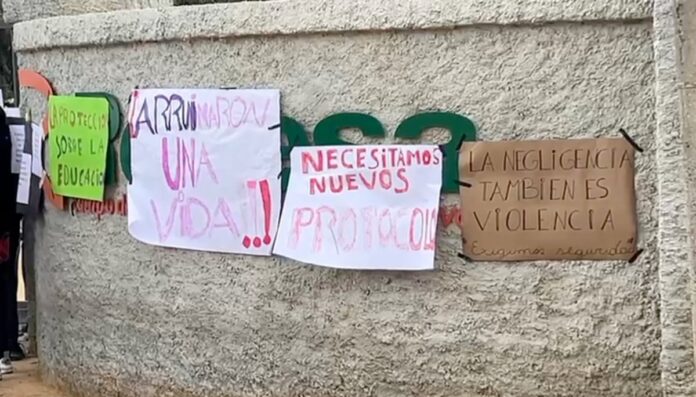 LA PROTECCIÓ
SOBRE LA
EDUCACIÓN
¡ARRUINARON
UNA
VIDA!!!
NECESITAMOS
NUEVOS
PROTOCOLO
LA NEGLIGENCIA
TAMBIEN ES
VIOLENCIA
Exigimos seguridad
esa